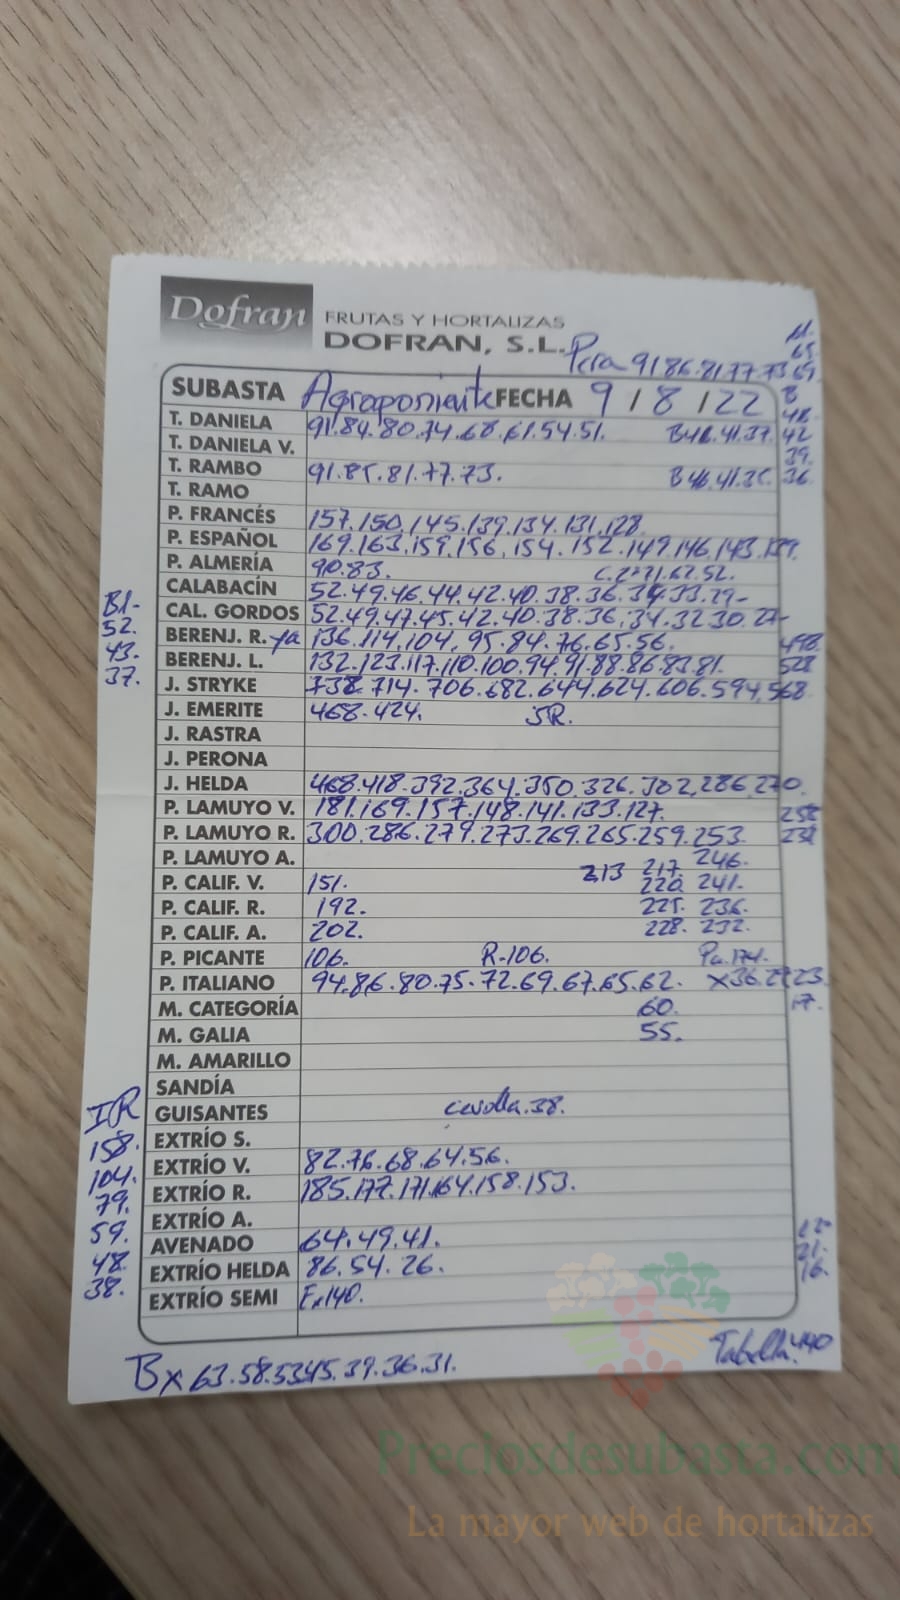 Dofran FRUTAS Y HORTALIZAS
DOFRAN, S.L. Pera 91 86.81 77.73 69.
65.
SUBASTA Agroponiente FECHA 9 / 8 / 22 B
48.
T. DANIELA 91.84.80.74.68.61.54.51. B48.41.37. 42
T. DANIELA V. 39.
T. RAMBO 91.85.81.77.73. B46.41.35. 36.
T. RAMO
P. FRANCÉS 157.150.145.139.134.131.128.
P. ESPAÑOL 169.163.159.156.154.152.149.146.143.139.
P. ALMERÍA 90.83.
CALABACÍN 52.49.46.44.42.40.38.36.34.33.29-
B1-
CAL. GORDOS 52.49.47.45.42.40.38.36.34.32.30.27-
52.
BERENJ. R. ya 136.114.104.95.84.76.65.56. 498.
43.
BERENJ. L. 132.123.117.110.100.94.91.88.86.83.81. 528
37.
J. STRYKE 738.714.706.682.644.624.606.594.568
J. EMERITE 468.424. SR.
J. RASTRA
J. PERONA
J. HELDA 468.418.392.364.350.326.302.286.270.
P. LAMUYO V. 181.169.157.148.141.133.127. 258
P. LAMUYO R. 300.286.279.273.269.265.259.253.
P. LAMUYO A. 213 217. 246.
P. CALIF. V. 151. 220. 241.
P. CALIF. R. 192. 225. 236.
P. CALIF. A. 202. 228. 232.
P. PICANTE 106. R-106. Pa.174.
P. ITALIANO 94.86.80.75.72.69.67.65.62. x36.29.23.
M. CATEGORÍA 60. 17.
M. GALIA 55.
M. AMARILLO
SANDÍA
IR
GUISANTES 38.
158.
EXTRÍO S.
104.
EXTRÍO V. 82.76.68.64.56.
79.
EXTRÍO R. 185.177.171.164.158.153.
59.
EXTRÍO A.
AVENADO 64.49.41.
48.
21.
EXTRÍO HELDA 86.54.26. 16.
38.
EXTRÍO SEMI Ex140.
Bx 63.58.53.45.39.36.31. Tabella.440
Preciosdesubasta.com
La mayor web de hortalizas